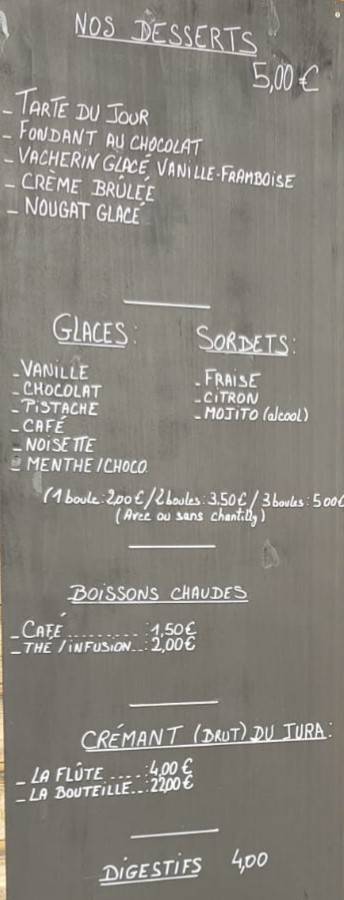 NOS DESSERTS
5,00 €
- TARTE DU JOUR
- FONDANT AU CHOCOLAT
- VACHERIN GLACÉ VANILLE-FRAMBOISE
- CRÈME BRÛLÉE
- NOUGAT GLACÉ
GLACES:
- VANILLE
- CHOCOLAT
- PISTACHE
- CAFÉ
- NOISETTE
- MENTHE/CHOCO
SORBETS:
- FRAISE
- CITRON
- MOJITO (alcool)
(1 boule: 2,00 € / 2 boules: 3.50 € / 3 boules: 5.00€
(Avec ou sans chantilly)
BOISSONS CHAUDES
- CAFÉ .......... : 1,50€
- THE / INFUSION... : 2,00€
CRÉMANT (BRUT) DU JURA:
- LA FLÛTE ..... : 4,00 €
- LA BOUTEILLE.. : 22,00 €
DIGESTIFS 4,00